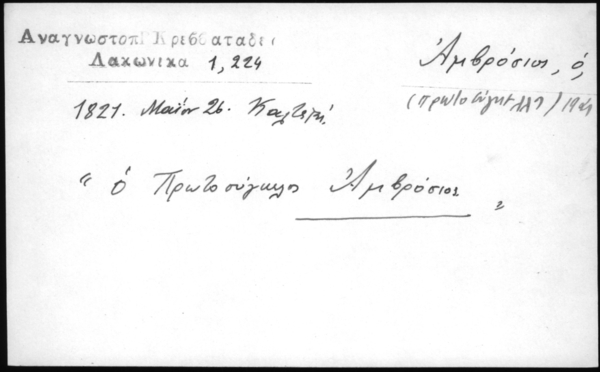 Αναγνωστοπ Κρεββαταδε
Λακωνικα 1,224
Ἀμβρόσιος, ὁ,
(πρωτοσύγκελλος) 1821
1821. Μαΐου 26. Καλτεζιαί.
" ὁ Πρωτοσύγκελος Ἀμβρόσιος "